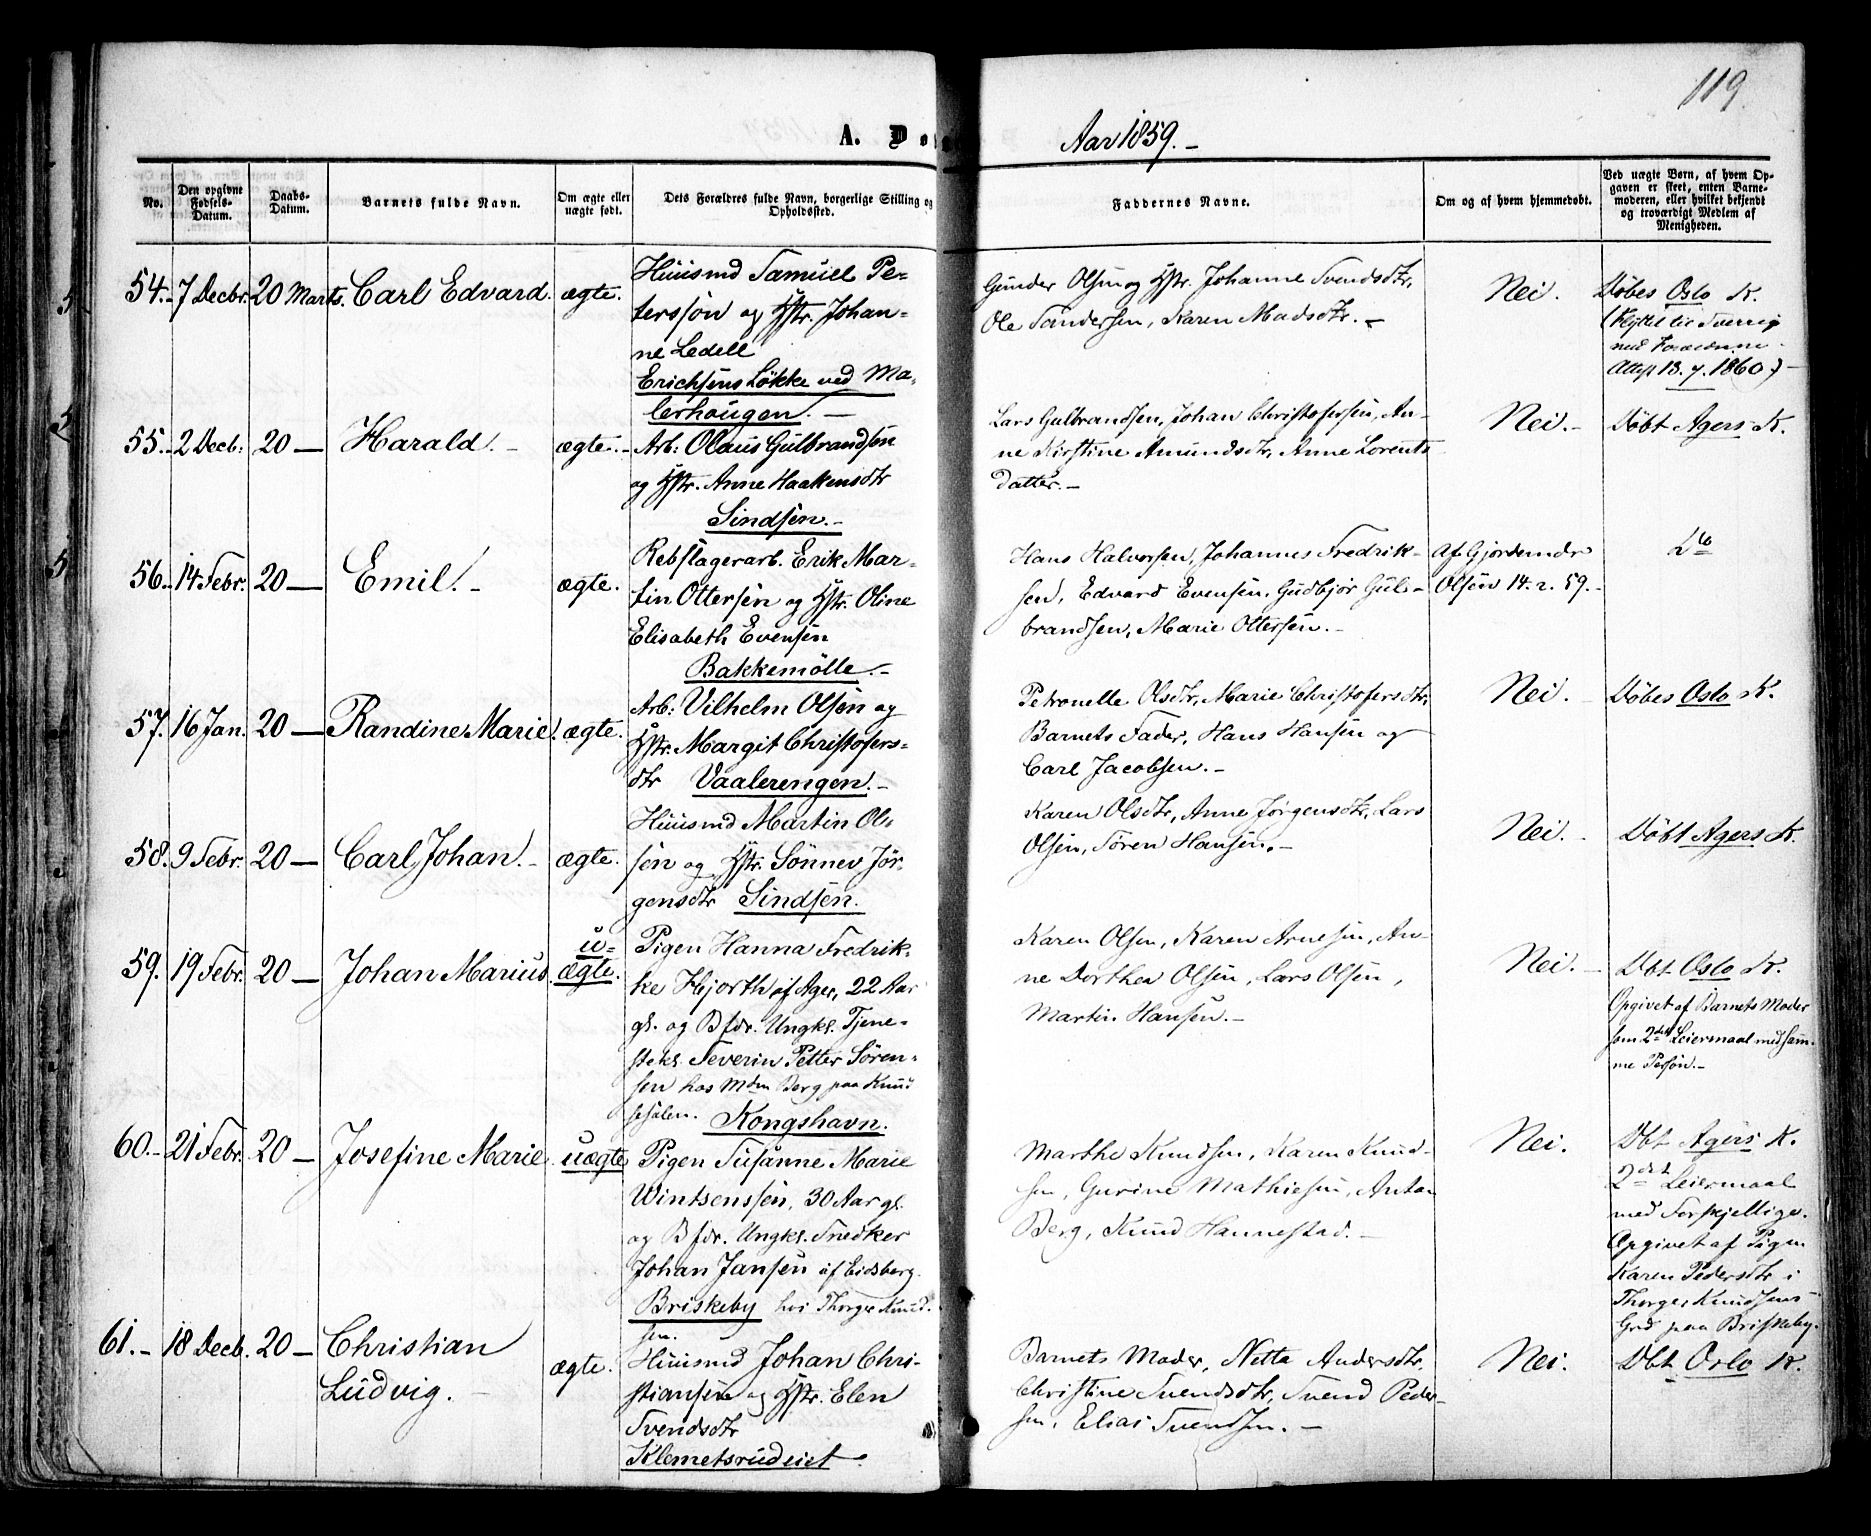 119.
A. D
Aar 1859.-
No.
Den opgivne Fødsels-Datum.
Daabs-Datum.
Barnets fulde Navn.
Om ægte eller uægte født.
Dets Forældres fulde Navn, borgerlige Stilling og Opholdssted.
Faddernes Navne.
Om og af hvem hjemmedøbt.
Ved uægte Børn, af hvem Op-
gaven er skeet, enten Barne-
moderen, eller hvilket bekjendt
og troværdigt Medlem af
Menigheden.
54.- 7 Decbr. 20 Marts. Carl Edvard. ægte.
Huusmd Samuel Pe-
tersson og Hstr. Johan-
ne Ledell
Erichsens Løkke ved Ma-
lerhougen.-
Gunder Olsen og Hstr. Johanne Svendsdtr,
Ole Sandersen, Karen Madsdtr.-
Nei.
Døbes Oslo K.
(Flyttet til Sverrig
med Forældrene.
Attest 13.7.1860.)-
55.- 2 Decb: 20- Harald.- ægte.-
Arb: Olaus Gulbrandsen
og Hstr. Anne Haakensdtr
Sindsen.-
Lars Gulbrandsen, Johan Christofersen, An-
ne Kirstine Amundsdtr, Anne Lorents
datter.-
Nei.-
Døbt Agers K.
56.- 14 Febr. 20- Emil.- ægte.
Rebslagerarb. Erik Mar-
tin Ottersen og Hstr. Oline
Elisabeth Evensen
Bakkemølle.-
Hans Halvorsen, Johannes Fredrik-
sen, Edvard Evensen, Gudbjør Gul-
brandsen, Marie Ottersen.-
Af Gjordemdr
Olsen 14.2.59.-
Do
57. 16 Jan. 20- Randine Marie. ægte.
Arb: Vilhelm Olsen og
Hstr. Margit Christofers-
dtr Vaalerengen.-
Petronelle Olsdtr, Marie Christofersdtr,
Barnets Fader, Hans Hansen og
Carl Jacobsen.-
Nei.
Døbes Oslo K.
58. 9 Febr. 20- Carl Johan.- ægte.
Huusmd Martin Ol-
sen og Hstr. Sønnev Jør-
gensdtr Sindsen.
Karen Olsdtr, Anne Jørgensdtr, Lars
Olsen, Søren Hansen.-
Nei.-
Døbt Agers K.
59. 19 Febr. 20- Johan Marius.
u-
ægte.
Pigen Hanna Fredrik-
ke Hjorth af Ager, 22 Aar
gl. og Bfdr. Ungkl. Tjene-
stekl. Severin Petter Søren-
sen hos Mdm Berg paa Knud
sesalen. Kongshavn.
Karen Olsen, Karen Arnesen, An-
ne Dorthea Olsen, Lars Olsen,
Martin Hansen.-
Nei.-
Dbt Oslo K.
Opgivet af Barnets Moder
som 2det Leiermaal med sam-
me Person.-
60.- 21 Febr. 20- Josefine Marie. uægte
Pigen Susanne Marie
Wintsenssen, 30 Aar gl.
og Bfdr. Ungkl. Snedker
Johan Jansen af Eidsberg.
Briskeby hos Thorger Knud-
sen.
Marthe Knudsen, Karen Knud-
sen, Gurine Mathiesen, Anton
Berg, Knud Hannestad.-
Nei.
Dbt Agers K.
2det Leiermaal
med Forskjellige.
Opgivet af Pigen
Karen Pedersdtr i
Thorger Knudsens
Grd paa Briskeby.
61.- 18 Decb. 20- Christian
Ludvig.- ægte.
Huusmd Johan Chri-
stiansen og Hstr. Elen
Svendsdtr
Klemetsrudeiet.
Barnets Moder, Netta Andersdtr,
Christine Svendsdtr, Svend Peder-
sen, Elias Svendsen.-
Nei.
Dbt Oslo K.